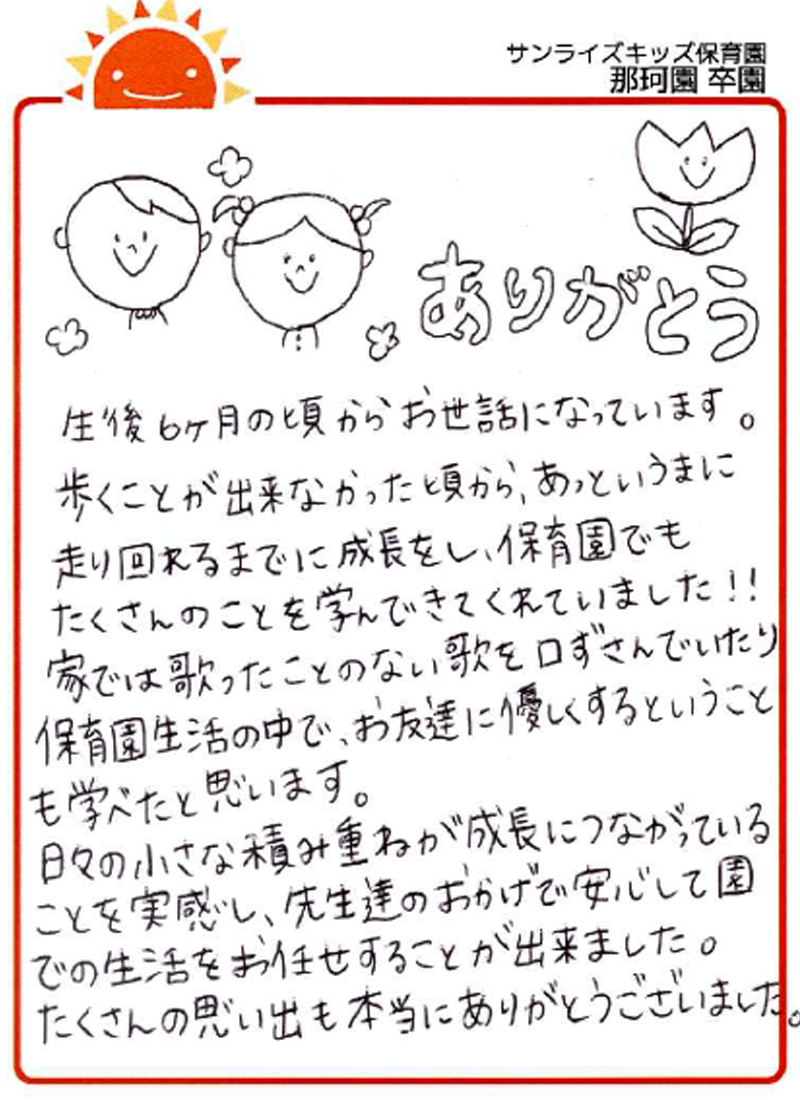 サンライズキッズ保育園
那珂園 卒園
ありがとう
生後6ヶ月の頃からお世話になっています。
歩くことが出来なかった頃から、あっというまに
走り回れるまでに成長をし、保育園でも
たくさんのことを学んできてくれていました!!
家では歌ったことのない歌を口ずさんでいたり
保育園生活の中で、お友達に優しくするということ
も学べたと思います。
日々の小さな積み重ねが成長につながっている
ことを実感し、先生達のおかげで安心して園
での生活をお任せすることが出来ました。
たくさんの思い出も本当にありがとうございました。